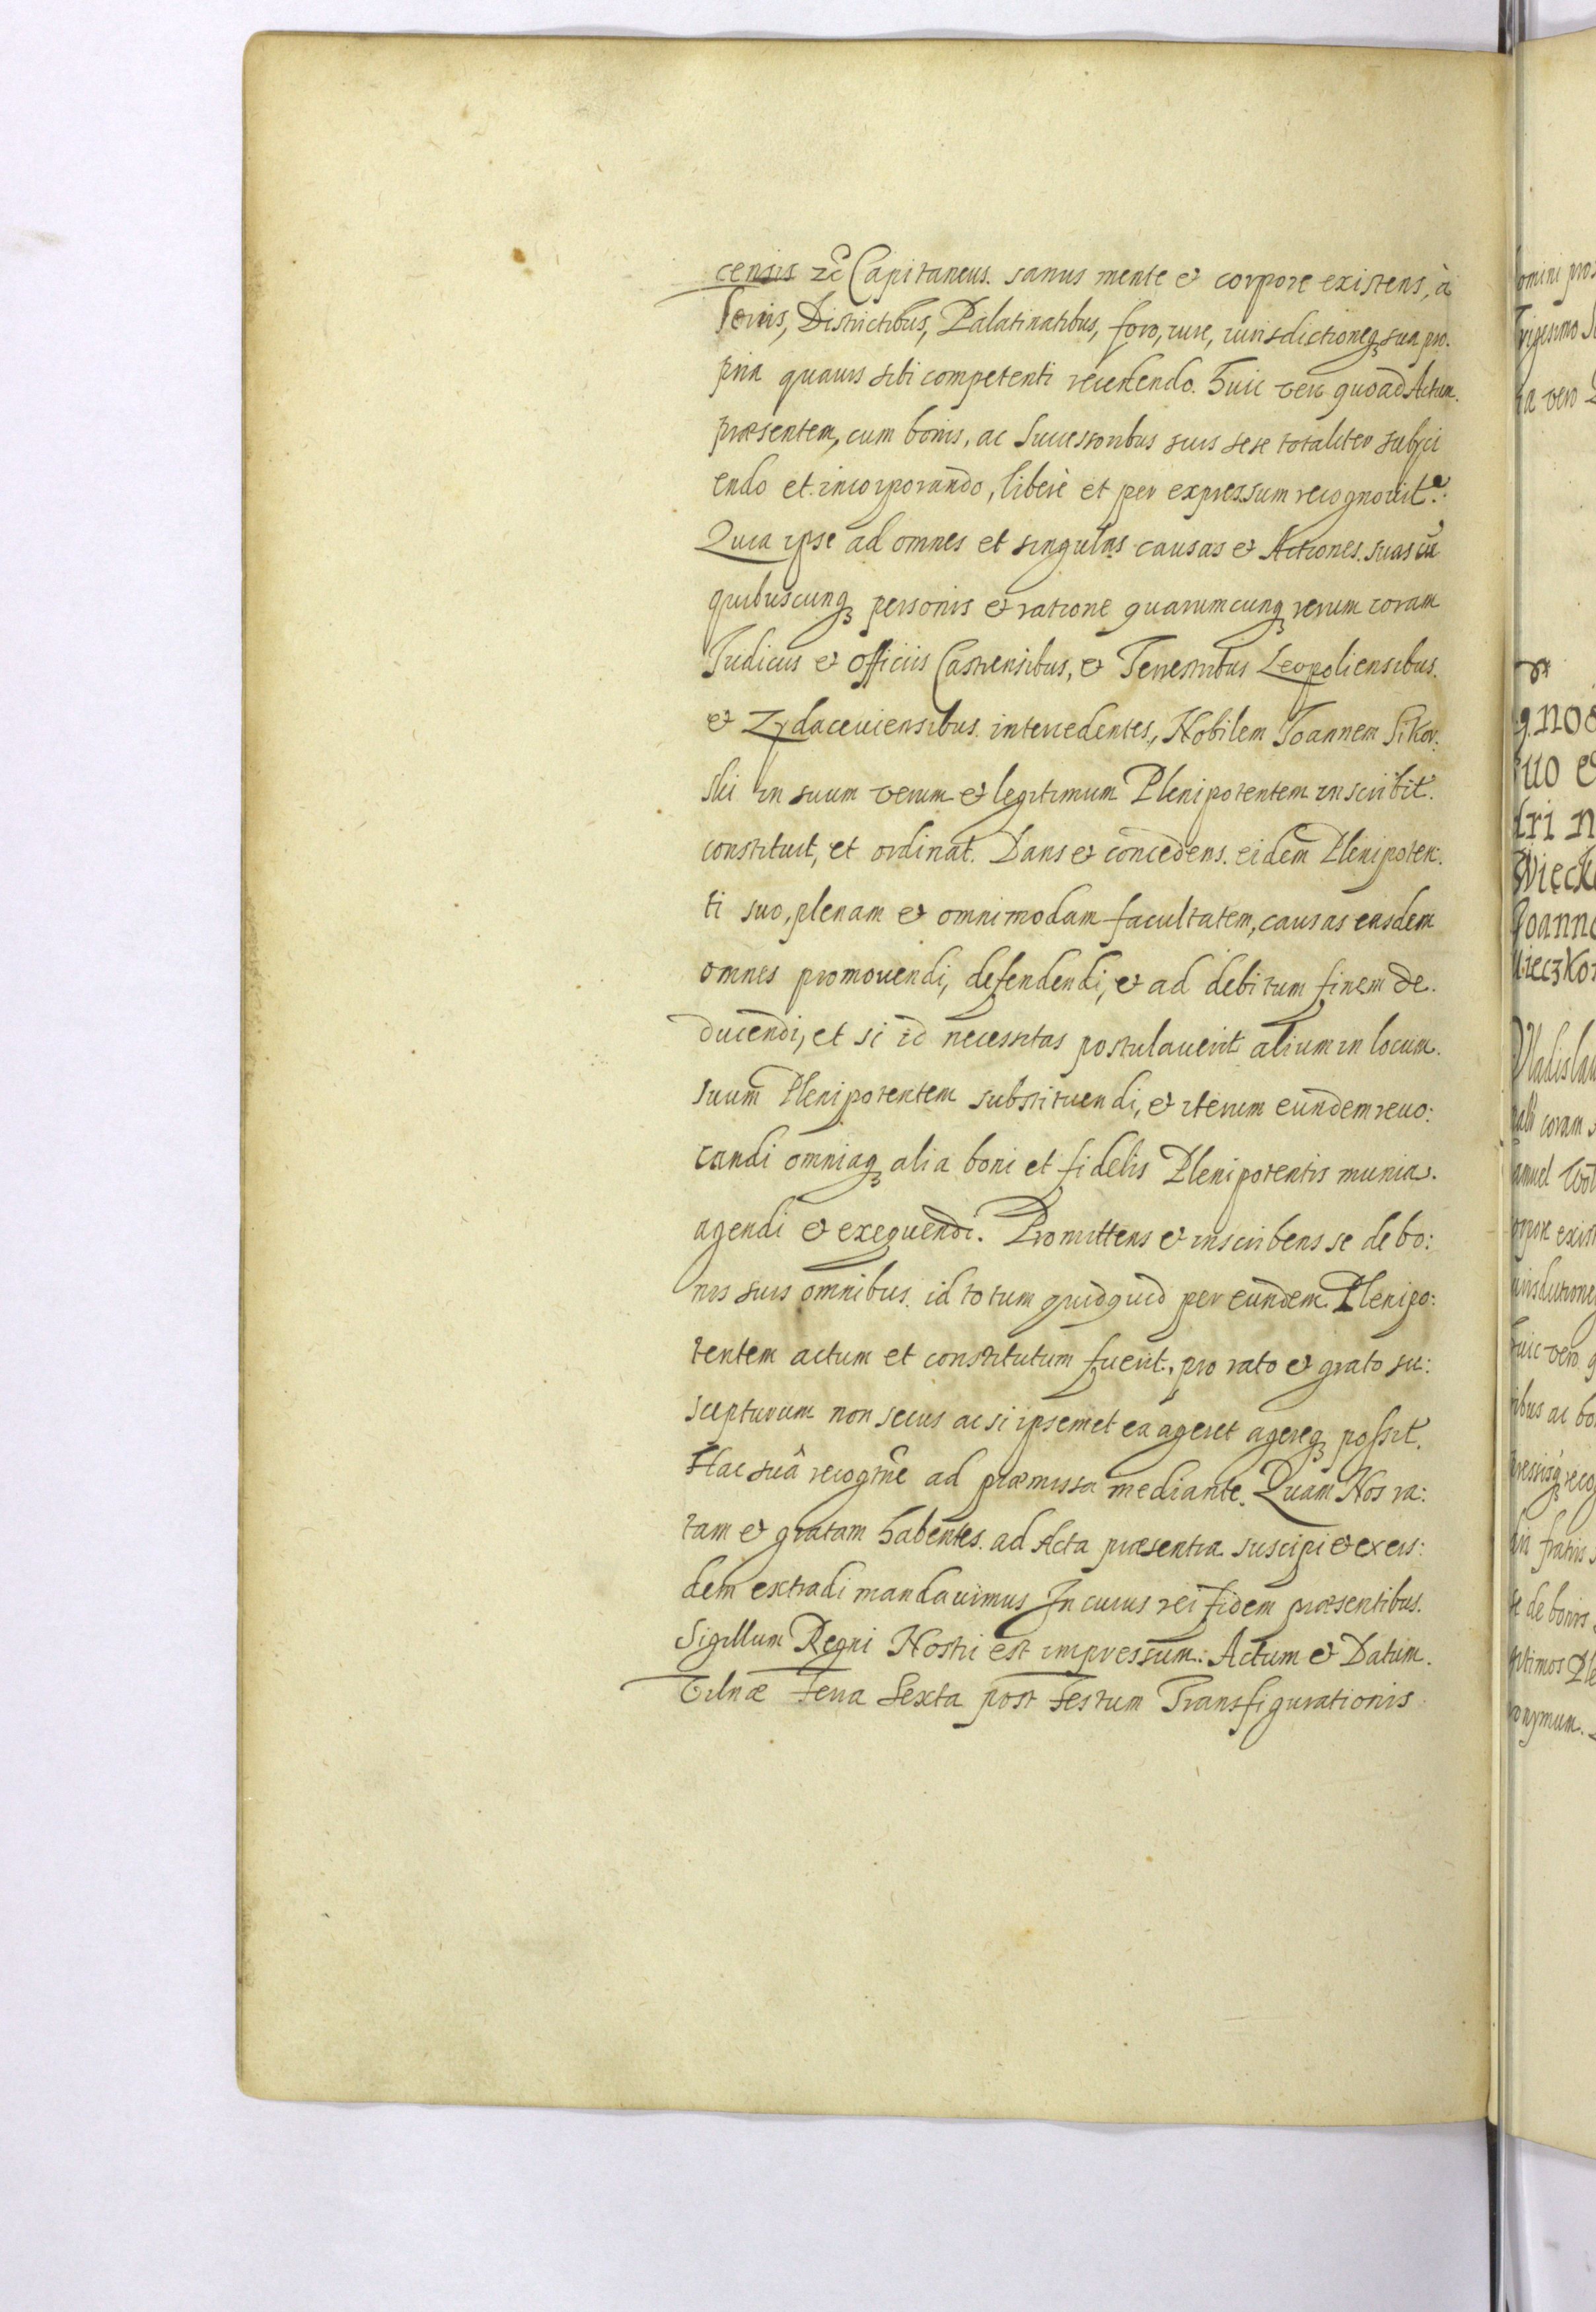 censis zc Capitaneus. sanus mente et corpore existens, à
Terris, Districtibus, Palatinatibus, foro, iure, iurisdictioneq3 sua pro.
pria quavis sibi competenti recedendo. huic vero quoad Actum.
præsentem, cum bonis, ac Successoribus suis sese totaliter subjici
endo et incorporando, liberè et per expressum recognovit:
Quia ipse ad omnes et singulas causas et Actiones suas cū
quibuscunq3 personis et ratione quarumcunq3 rerum coram
Judiciis et officiis Castrensibus, et Terrestribus Leopoliensibus.
et Zydaceuiensibus intercedentes, Nobilem Joannem Sikor.
ski in suum verum et legitimum Plenipotentem inscribit.
constituit, et ordinat. Dans et concedens eidem Plenipoten:
ti suo, plenam et omnimodam facultatem, causas easdem
omnes promouendi, defendendi, et ad debitum finem de.
ducendi, et si id necessitas postulauerit alium in locum.
suum Plenipotentem substituendi, et iterum eundem reuo:
candi omniaq3 alia boni et fidelis Plenipotentis munia.
agendi et exequendi. Promittens et inscribens se de bo:
nis suis omnibus id totum quidquid per eundem Plenipo:
tentem actum et constitutum fuerit, pro rato et grato su:
scepturum non secus ac si ipsemet ea ageret agereq3 possit.
Hac suâ recogñe ad præmissa mediante. Quam Nos ra:
tam et gratam habentes ad Acta præsentia suscipi et ex eis:
dem extradi mandauimus In cuius rei fidem præsentibus.
Sigillum Regni Nostri est impressum. Actum et Datum.
Vilnæ Feria Sexta post Festum Transfigurationis